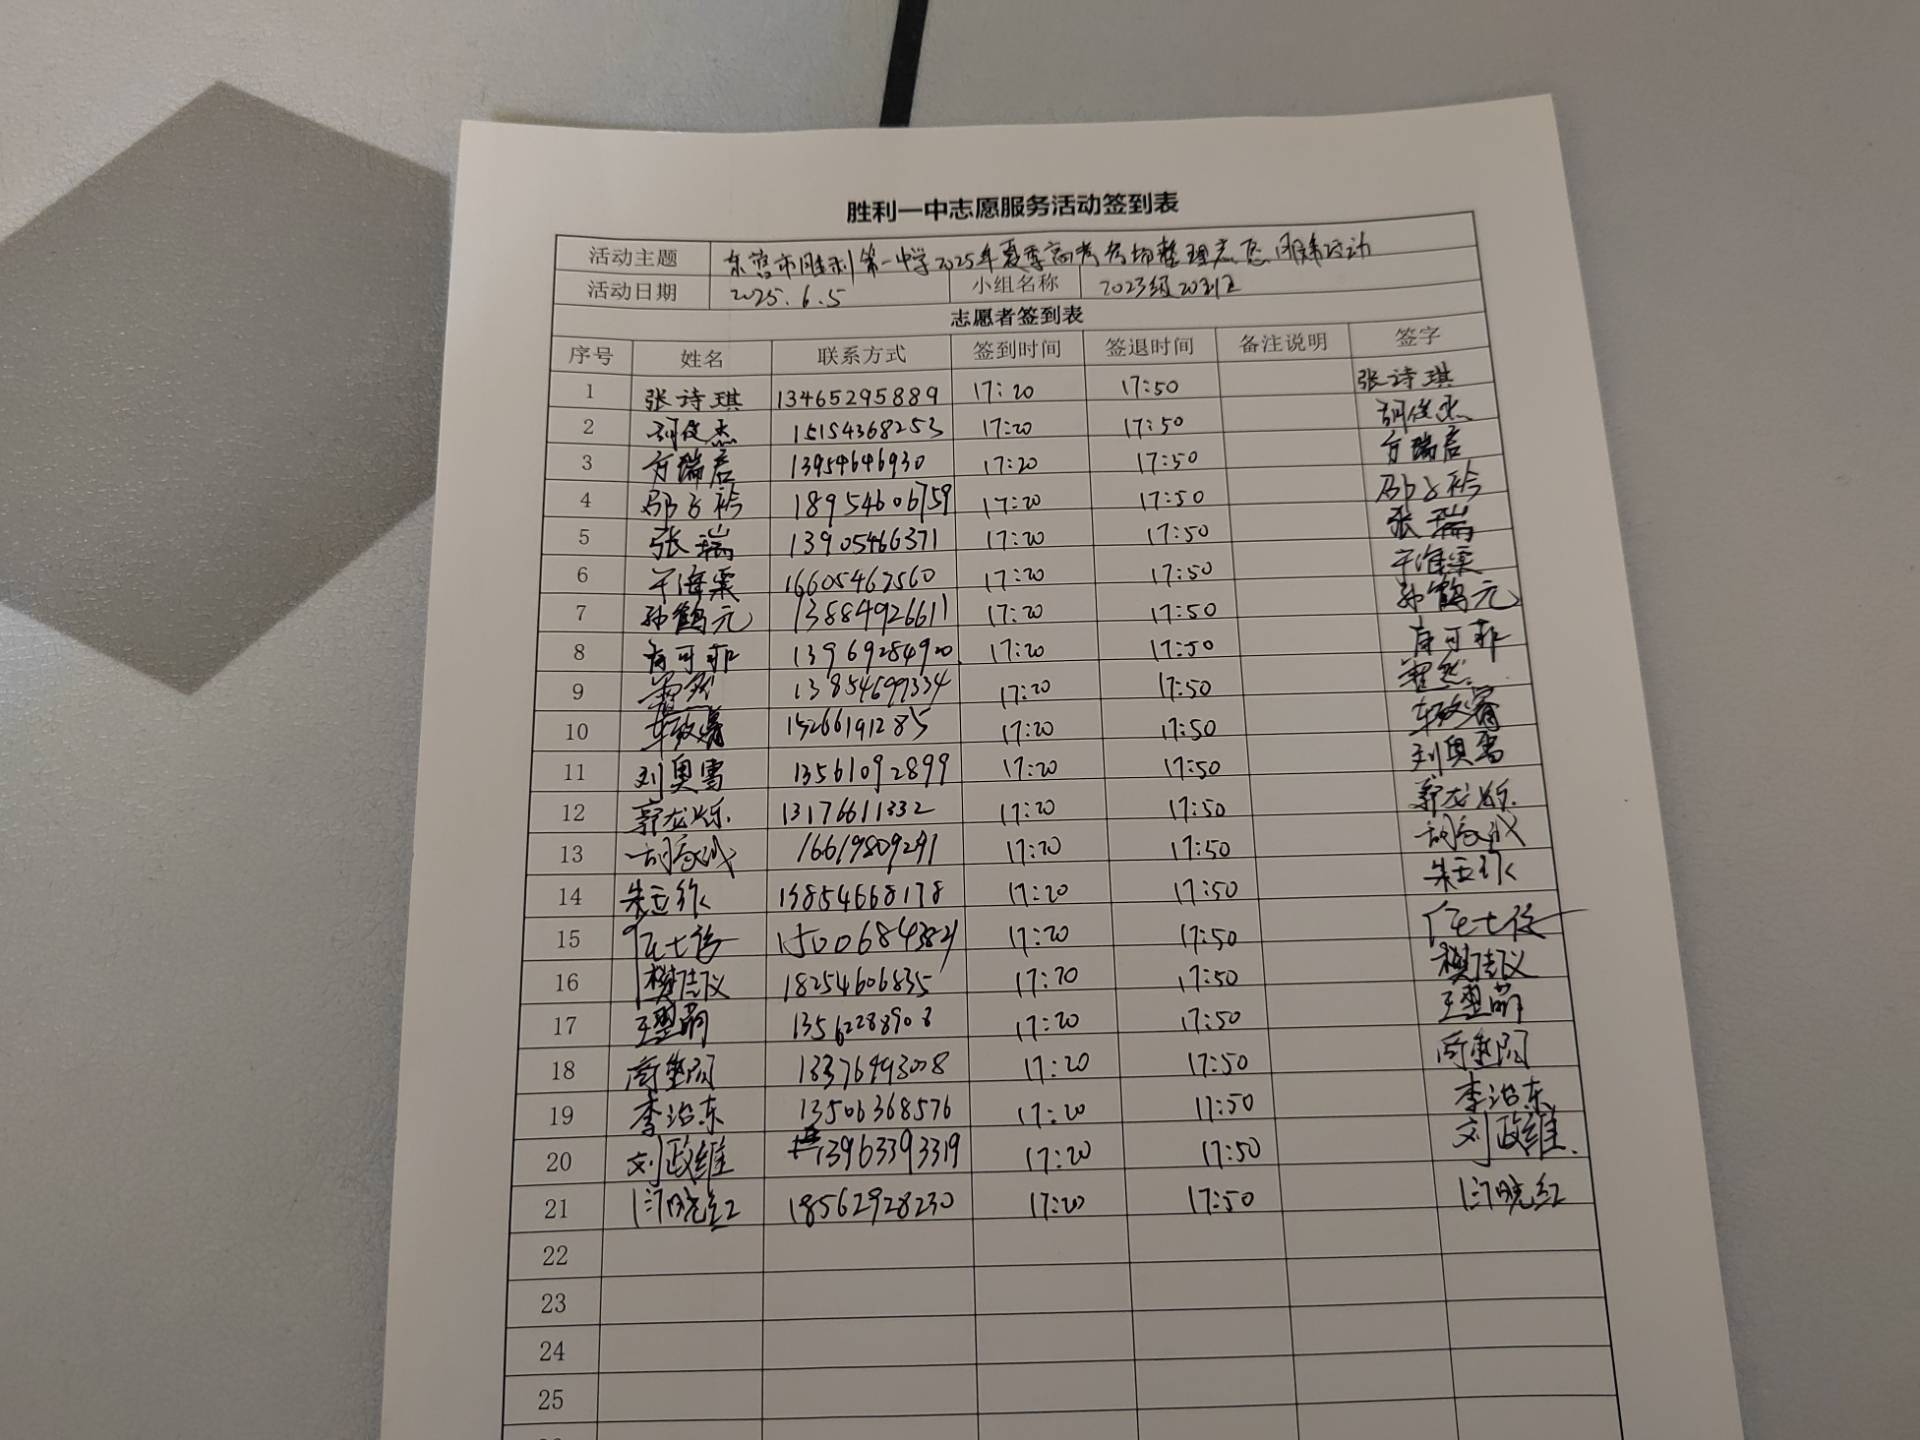 胜利一中志愿服务活动签到表
活动主题 东营市胜利第一中学2025年夏季高考考场整理志愿服务活动
活动日期 2025.6.5 小组名称 2023级20班
志愿者签到表
序号 姓名 联系方式 签到时间 签退时间 备注说明 签字
1 张诗琪 13465295889 17:20 17:50 张诗琪
2 胡俊杰 15154368253 17:20 17:50 胡俊杰
3 方瑞君 13954646930 17:20 17:50 方瑞君
4 邵子衿 18954606759 17:20 17:50 邵子衿
5 张瑞 13905466371 17:20 17:50 张瑞
6 于海栗 16605462560 17:20 17:50 于海栗
7 孙鹤元 13884926611 17:20 17:50 孙鹤元
8 可菲 13969284900 17:20 17:50 可菲
9 13854699334 17:20 17:50
10 车致睿 15266191285 17:20 17:50 车致睿
11 刘奥雪 13561092899 17:20 17:50 刘奥雪
12 郭龙烁 13176611332 17:20 17:50 郭龙烁
13 胡家诚 16619809291 17:20 17:50 胡家诚
14 朱玉珍 13854668178 17:20 17:50 朱玉珍
15 任士俊 17:20 17:50 任士俊
16 樊佳议 18254606835 17:20 17:50 樊佳议
17 王墨萌 13562288908 17:20 17:50 王墨萌
18 13376493008 17:20 17:50
19 李治东 13506368576 17:20 17:50 李治东
20 刘政维 13963393319 17:20 17:50 刘政维
21 闫晓红 18562928230 17:20 17:50 闫晓红
22
23
24
25